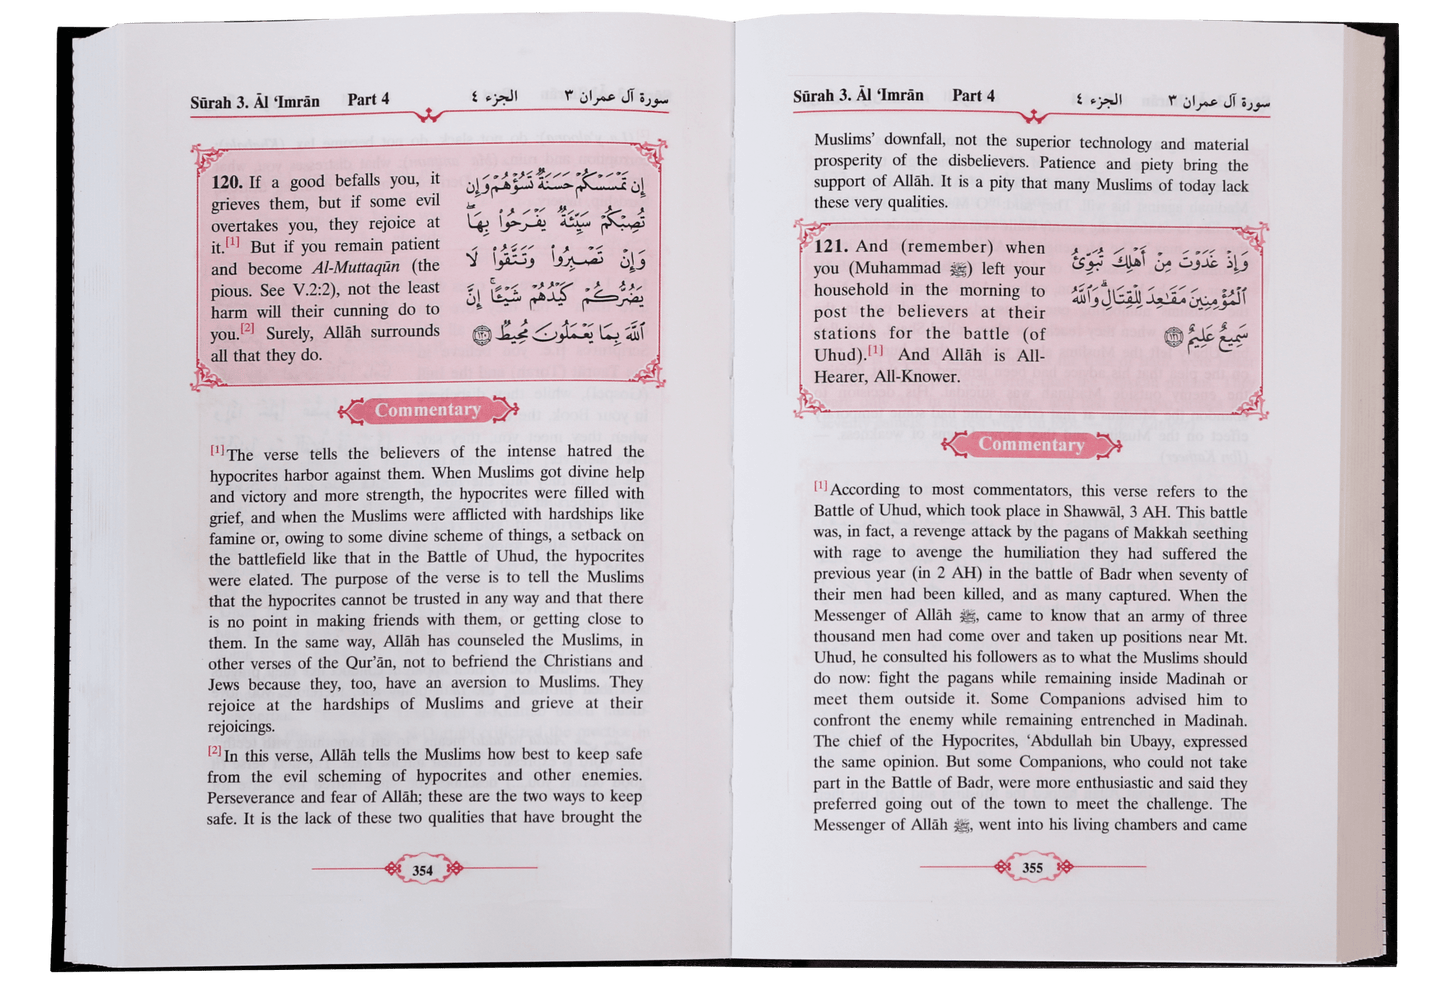 Sūrah 3. Āl ‘Imrān Part 4 الجزء ٤ سورة آل عمران ٣
120. If a good befalls you, it
grieves them, but if some evil
overtakes you, they rejoice at
it.[1] But if you remain patient
and become Al-Muttaqūn (the
pious. See V.2:2), not the least
harm will their cunning do to
you.[2] Surely, Allāh surrounds
all that they do.
إِن تَمْسَسْكُمْ حَسَنَةٌ تَسُؤْهُمْ وَإِن
تُصِبْكُمْ سَيِّئَةٌ يَفْرَحُوا۟ بِهَا ۖ
وَإِن تَصْبِرُوا۟ وَتَتَّقُوا۟ لَا
يَضُرُّكُمْ كَيْدُهُمْ شَيْـًٔا ۗ إِنَّ
ٱللَّهَ بِمَا يَعْمَلُونَ مُحِيطٌ ١٢٠
Commentary
[1]The verse tells the believers of the intense hatred the
hypocrites harbor against them. When Muslims got divine help
and victory and more strength, the hypocrites were filled with
grief, and when the Muslims were afflicted with hardships like
famine or, owing to some divine scheme of things, a setback on
the battlefield like that in the Battle of Uhud, the hypocrites
were elated. The purpose of the verse is to tell the Muslims
that the hypocrites cannot be trusted in any way and that there
is no point in making friends with them, or getting close to
them. In the same way, Allāh has counseled the Muslims, in
other verses of the Qur’ān, not to befriend the Christians and
Jews because they, too, have an aversion to Muslims. They
rejoice at the hardships of Muslims and grieve at their
rejoicings.
[2]In this verse, Allāh tells the Muslims how best to keep safe
from the evil scheming of hypocrites and other enemies.
Perseverance and fear of Allāh; these are the two ways to keep
safe. It is the lack of these two qualities that have brought the
354
Sūrah 3. Āl ‘Imrān Part 4 الجزء ٤ سورة آل عمران ٣
Muslims’ downfall, not the superior technology and material
prosperity of the disbelievers. Patience and piety bring the
support of Allāh. It is a pity that many Muslims of today lack
these very qualities.
121. And (remember) when
you (Muhammad ﷺ) left your
household in the morning to
post the believers at their
stations for the battle (of
Uhud).[1] And Allāh is All-
Hearer, All-Knower.
وَإِذْ غَدَوْتَ مِنْ أَهْلِكَ تُبَوِّئُ
ٱلْمُؤْمِنِينَ مَقَـٰعِدَ لِلْقِتَالِ ۗ وَٱللَّهُ
سَمِيعٌ عَلِيمٌ ١٢١
Commentary
[1]According to most commentators, this verse refers to the
Battle of Uhud, which took place in Shawwāl, 3 AH. This battle
was, in fact, a revenge attack by the pagans of Makkah seething
with rage to avenge the humiliation they had suffered the
previous year (in 2 AH) in the battle of Badr when seventy of
their men had been killed, and as many captured. When the
Messenger of Allāh ﷺ, came to know that an army of three
thousand men had come over and taken up positions near Mt.
Uhud, he consulted his followers as to what the Muslims should
do now: fight the pagans while remaining inside Madinah or
meet them outside it. Some Companions advised him to
confront the enemy while remaining entrenched in Madinah.
The chief of the Hypocrites, ‘Abdullah bin Ubayy, expressed
the same opinion. But some Companions, who could not take
part in the Battle of Badr, were more enthusiastic and said they
preferred going out of the town to meet the challenge. The
Messenger of Allāh ﷺ, went into his living chambers and came
355